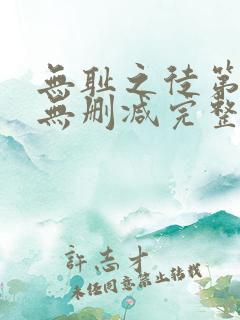 無耻之徒第
無删减完整
許志才
未經同意禁止转載